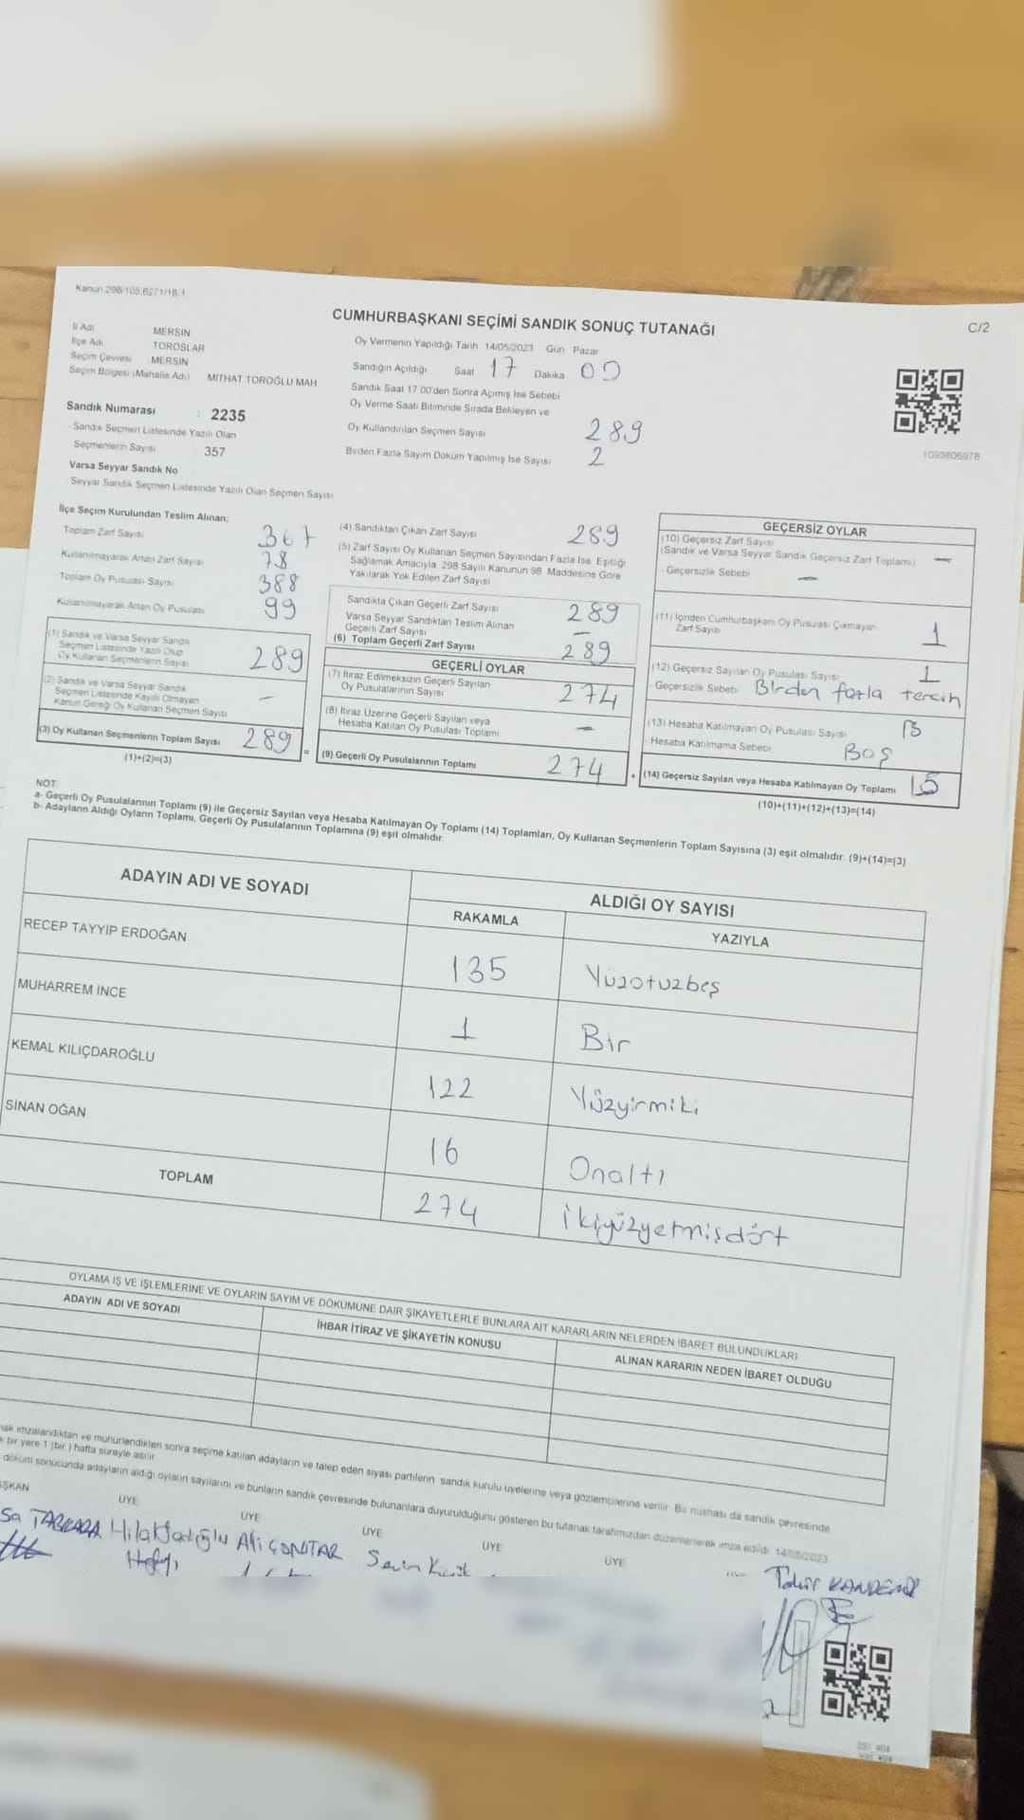 Kanun 298/105,6271/18.1
CUMHURBAŞKANI SEÇİMİ SANDIK SONUÇ TUTANAĞI
C/2
İl Adı MERSİN
İlçe Adı TOROSLAR
Seçim Çevresi MERSİN
Seçim Bölgesi (Mahalle Adı) MİTHAT TOROĞLU MAH
Sandık Numarası : 2235
Sandık Seçmen Listesinde Yazılı Olan
Seçmenlerin Sayısı 357
Varsa Seyyar Sandık No
Seyyar Sandık Seçmen Listesinde Yazılı Olan Seçmen Sayısı
Oy Vermenin Yapıldığı Tarih 14/05/2023 Gün Pazar
Sandığın Açıldığı Saat 17 Dakika 00
Sandık Saat 17.00'den Sonra Açılmış İse Sebebi
Oy Verme Saati Bitiminde Sırada Bekleyen ve
Oy Kullandırılan Seçmen Sayısı 289
Birden Fazla Sayım Döküm Yapılmış İse Sayısı 2
1093806978
İlçe Seçim Kurulundan Teslim Alınan;
Toplam Zarf Sayısı 367
Kullanılmayarak Artan Zarf Sayısı 78
Toplam Oy Pusulası Sayısı 388
Kullanılmayarak Artan Oy Pusulası 99
(1) Sandık ve Varsa Seyyar Sandık
Seçmen Listesinde Yazılı Olup
Oy Kullanan Seçmenlerin Sayısı 289
(2) Sandık ve Varsa Seyyar Sandık
Seçmen Listesinde Kayıtlı Olmayan
Kanun Gereği Oy Kullanan Seçmen Sayısı –
(3) Oy Kullanan Seçmenlerin Toplam Sayısı 289 =
(1)+(2)=(3)
(4) Sandıktan Çıkan Zarf Sayısı 289
(5) Zarf Sayısı Oy Kullanan Seçmen Sayısından Fazla İse, Eşitliği
Sağlamak Amacıyla, 298 Sayılı Kanunun 98. Maddesine Göre
Yakılarak Yok Edilen Zarf Sayısı
Sandıkta Çıkan Geçerli Zarf Sayısı 289
Varsa Seyyar Sandıktan Teslim Alınan
Geçerli Zarf Sayısı –
(6) Toplam Geçerli Zarf Sayısı 289
GEÇERLİ OYLAR
(7) İtiraz Edilmeksizin Geçerli Sayılan
Oy Pusulalarının Sayısı 274
(8) İtiraz Üzerine Geçerli Sayılan veya
Hesaba Katılan Oy Pusulası Toplamı –
(9) Geçerli Oy Pusulalarının Toplamı 274 +
GEÇERSİZ OYLAR
(10) Geçersiz Zarf Sayısı
(Sandık ve Varsa Seyyar Sandık Geçersiz Zarf Toplamı) –
Geçersizlik Sebebi –
(11) İçinden Cumhurbaşkanı Oy Pusulası Çıkmayan
Zarf Sayısı 1
(12) Geçersiz Sayılan Oy Pusulası Sayısı 1
Geçersizlik Sebebi Birden fazla tercih
(13) Hesaba Katılmayan Oy Pusulası Sayısı 13
Hesaba Katılmama Sebebi Boş
(14) Geçersiz Sayılan veya Hesaba Katılmayan Oy Toplamı 15
(10)+(11)+(12)+(13)=(14)
NOT:
a- Geçerli Oy Pusulalarının Toplamı (9) ile Geçersiz Sayılan veya Hesaba Katılmayan Oy Toplamı (14) Toplamları, Oy Kullanan Seçmenlerin Toplam Sayısına (3) eşit olmalıdır. (9)+(14)=(3)
b- Adayların Aldığı Oyların Toplamı, Geçerli Oy Pusulalarının Toplamına (9) eşit olmalıdır.
ADAYIN ADI VE SOYADI
ALDIĞI OY SAYISI
RAKAMLA YAZIYLA
RECEP TAYYİP ERDOĞAN 135 Yüzotuzbeş
MUHARREM İNCE 1 Bir
KEMAL KILIÇDAROĞLU 122 Yüzyirmiki
SİNAN OĞAN 16 Onaltı
TOPLAM 274 İkiyüzyetmişdört
OYLAMA İŞ VE İŞLEMLERİNE VE OYLARIN SAYIM VE DÖKÜMÜNE DAİR ŞİKAYETLERLE BUNLARA AİT KARARLARIN NELERDEN İBARET BULUNDUKLARI
ADAYIN ADI VE SOYADI
İHBAR İTİRAZ VE ŞİKAYETİN KONUSU
ALINAN KARARIN NEDEN İBARET OLDUĞU
imzalandıktan ve mühürlendikten sonra seçime katılan adayların ve talep eden siyasi partilerin sandık kurulu üyelerine veya gözlemcilerine verilir. Bir nüshası da sandık çevresinde
bir yere 1 (bir) hafta süreyle asılır.
döküm sonucunda adayların aldığı oyların sayılarını ve bunların sandık çevresinde bulunanlara duyurulduğunu gösteren bu tutanak tarafımızdan düzenlenerek imza edildi. 14/05/2023
ÜYE ÜYE ÜYE ÜYE ÜYE
Ali Tahir KANDEMİR